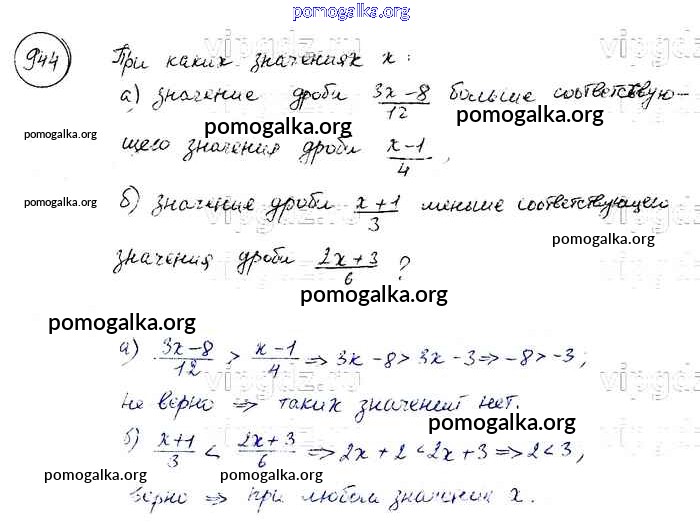 pomogalka.org
944
При каких значениях x:
а) значение дроби (3x-8)/12 больше соответствую-
щего значения дроби (x-1)/4,
б) значение дроби (x+1)/3 меньше соответствующего
значения дроби (2x+3)/6 ?
а) (3x-8)/12 > (x-1)/4 ⇒ 3x-8 > 3x-3 ⇒ -8 > -3;
не верно ⇒ таких значений нет.
б) (x+1)/3 < (2x+3)/6 ⇒ 2x+2 < 2x+3 ⇒ 2 < 3,
верно ⇒ при любом значении x.
pomogalka.org
pomogalka.org
pomogalka.org
pomogalka.org
pomogalka.org
pomogalka.org
pomogalka.org
pomogalka.org
pomogalka.org
pomogalka.org
pomogalka.org
vipgdz.ru
vipgdz.ru
vipgdz.ru